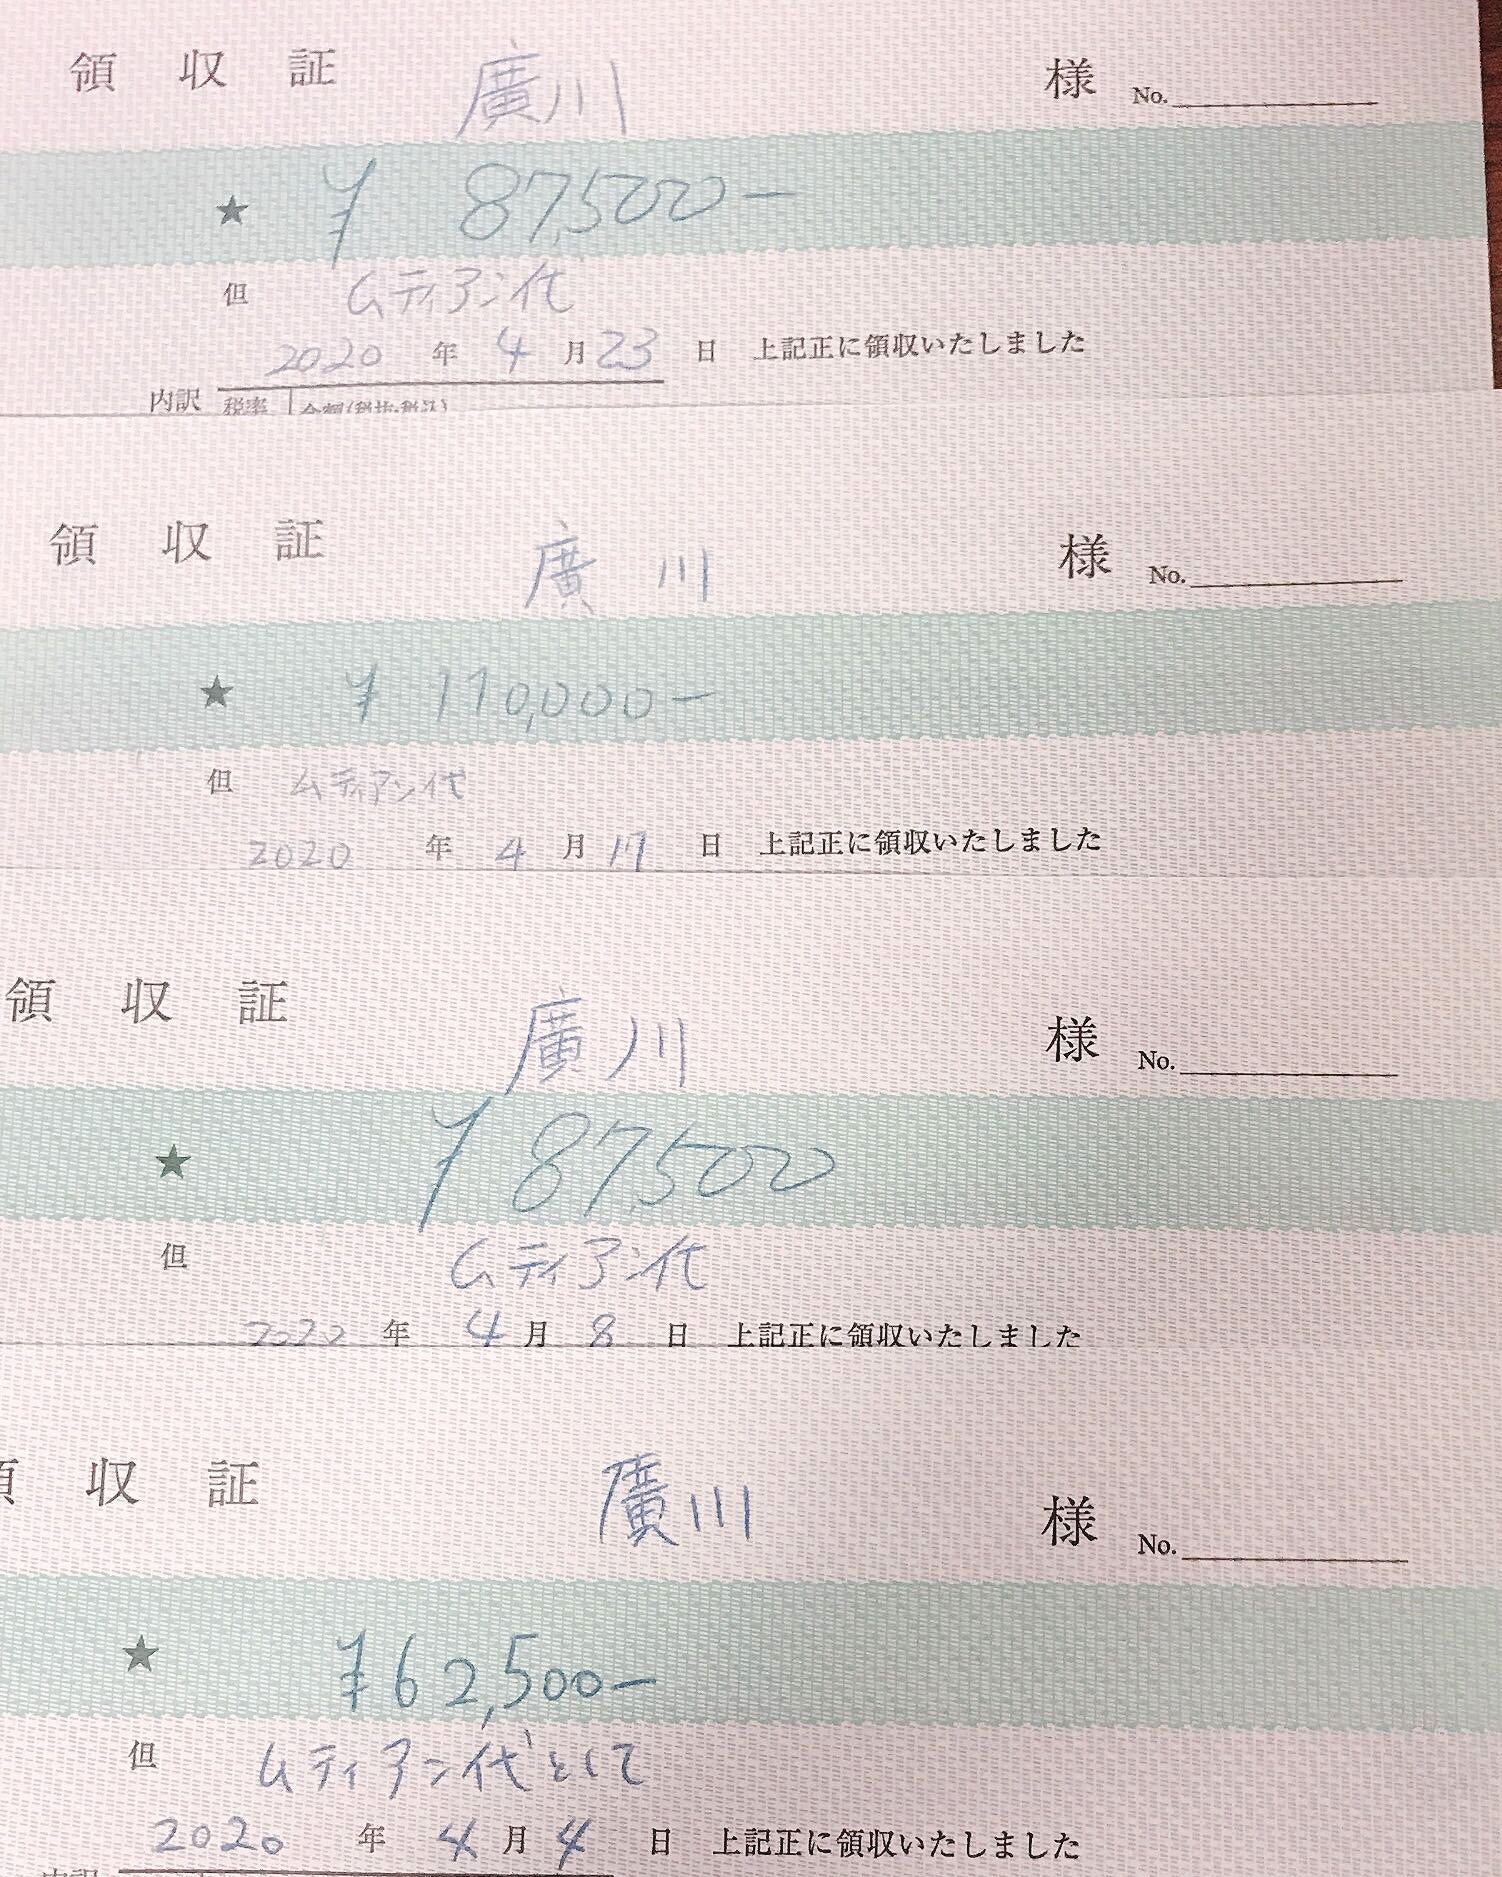 領収証 廣川 様 No.
★ ¥ 87,500-
但 ムティアン代
2020 年 4 月 23 日 上記正に領収いたしました
内訳 税率 金額(税抜・税込)
領収証 廣川 様 No.
★ ¥ 110,000-
但 ムティアン代
2020 年 4 月 17 日 上記正に領収いたしました
領収証 廣川 様 No.
★ ¥ 87,500
但 ムティアン代
2020 年 4 月 8 日 上記正に領収いたしました
領収証 廣川 様 No.
★ ¥62,500-
但 ムティアン代として
2020 年 4 月 4 日 上記正に領収いたしました
内訳